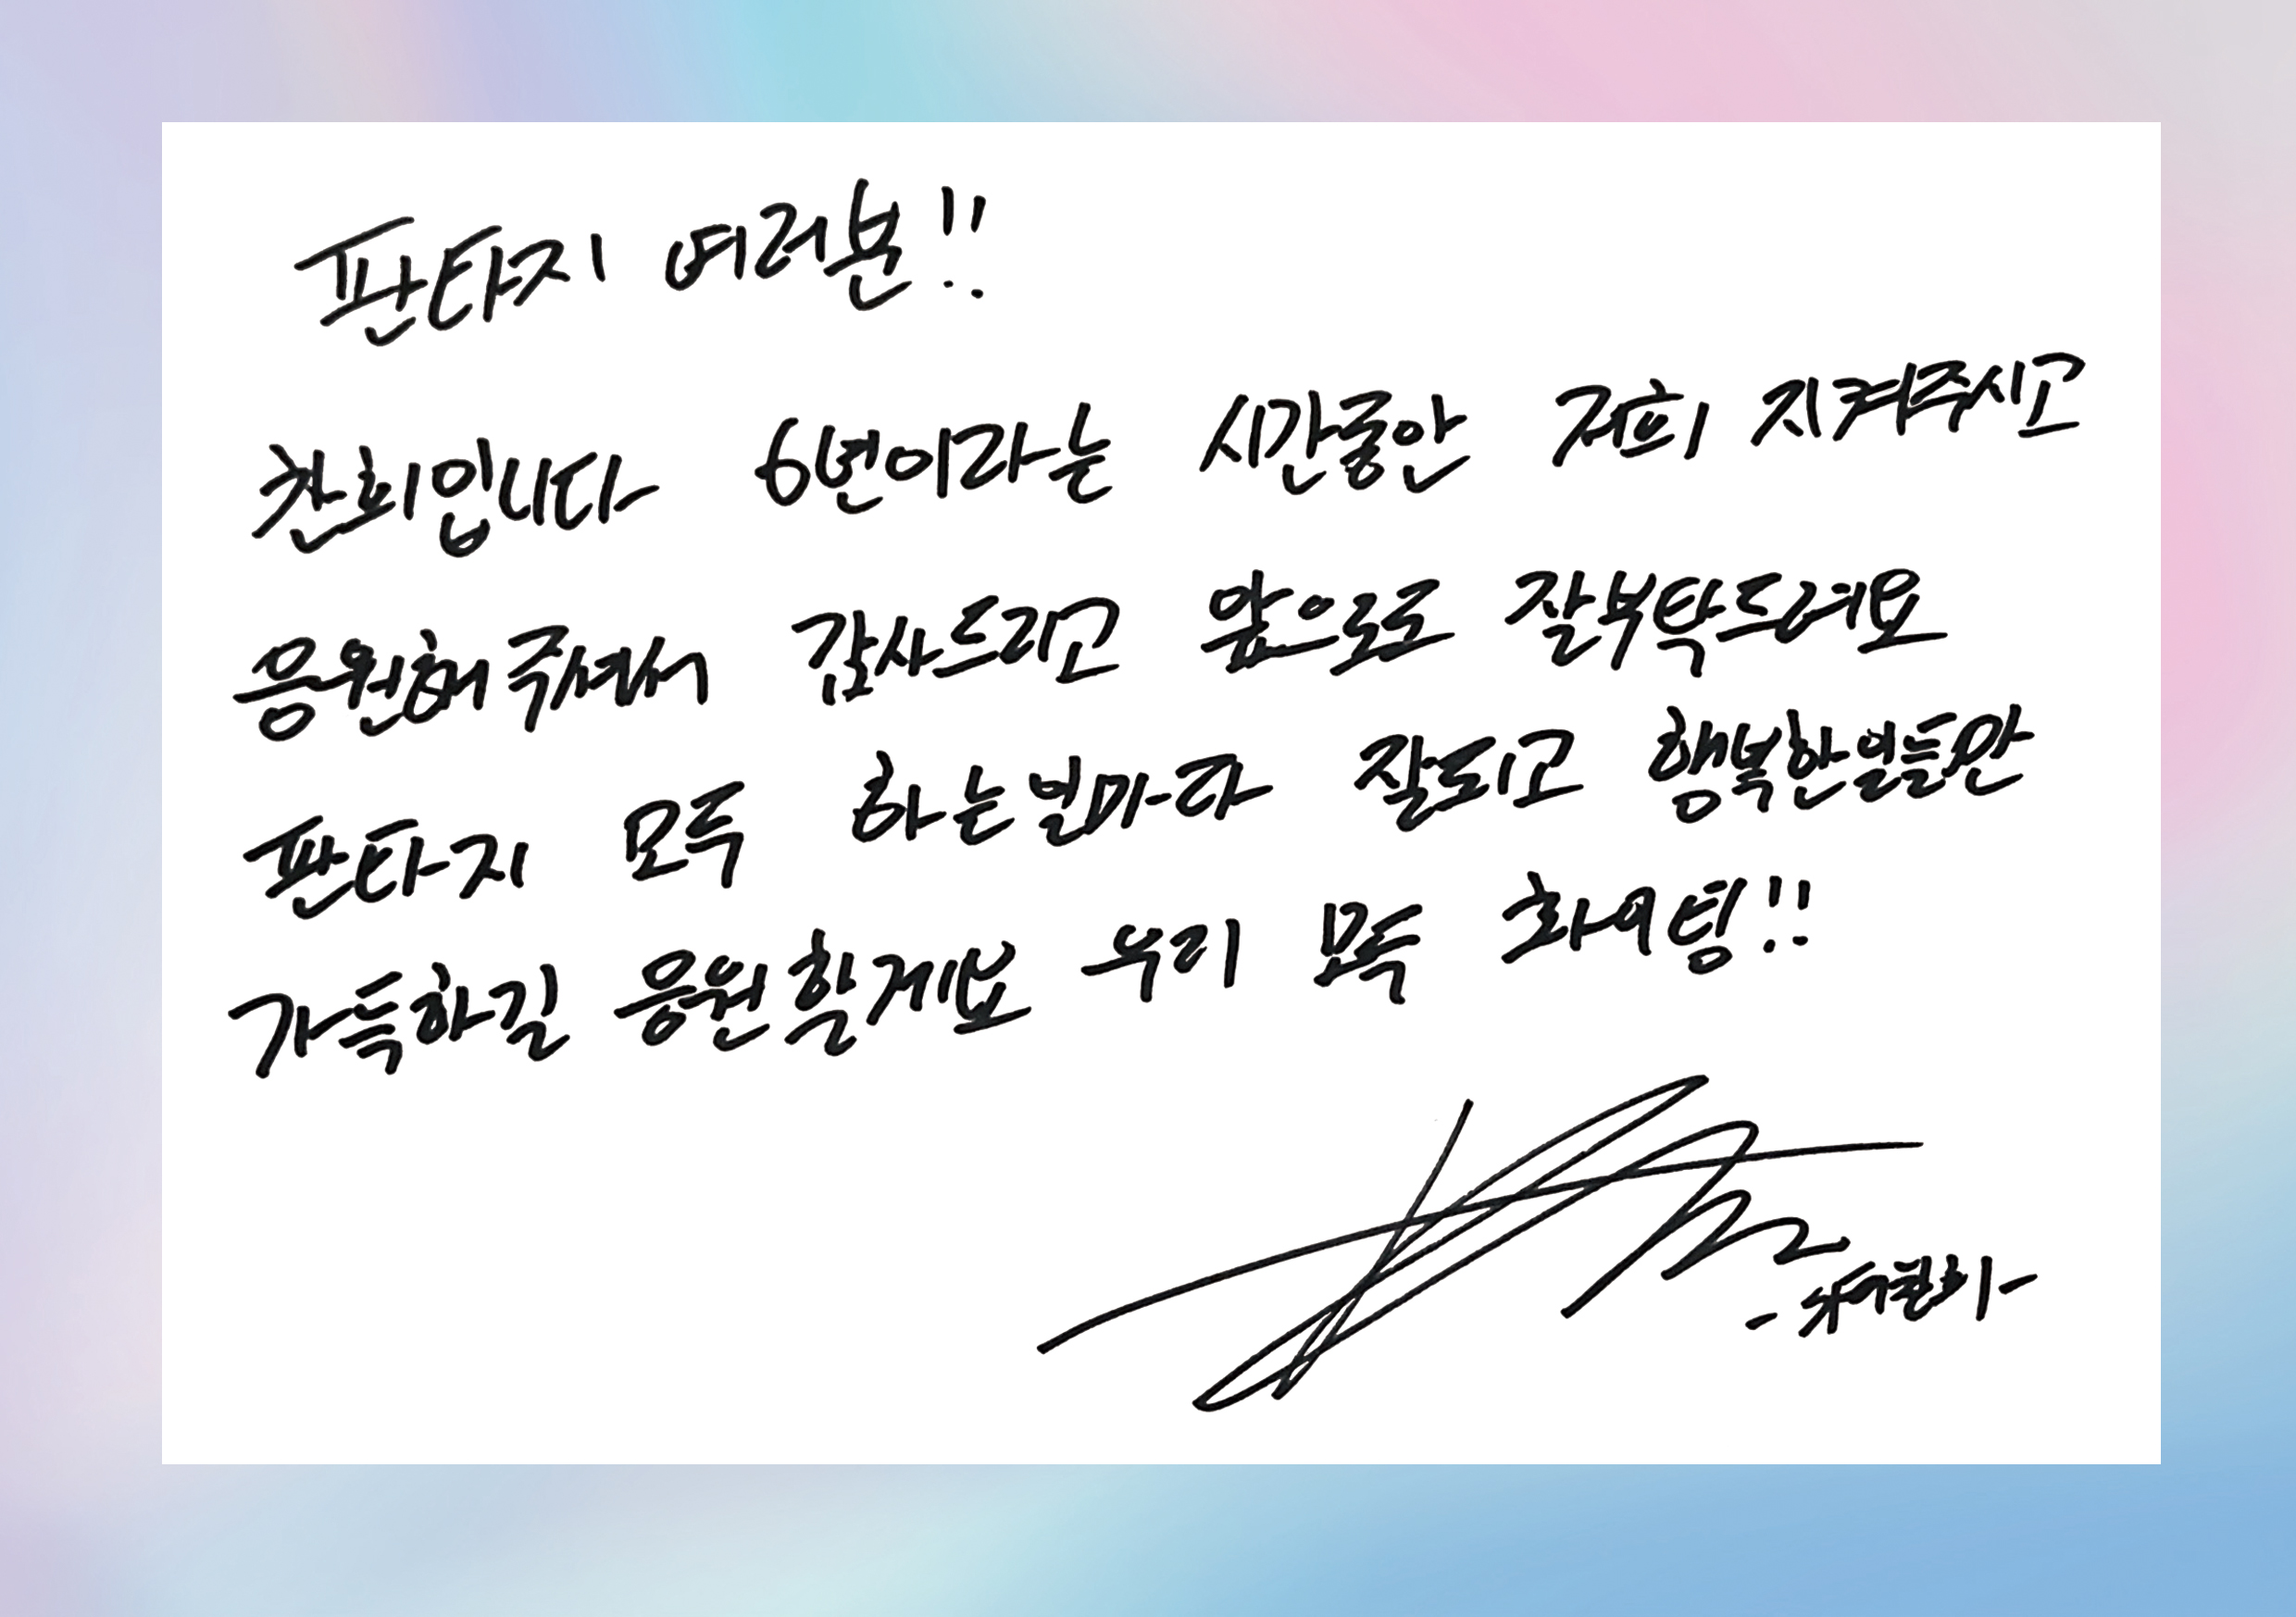 판타지 여러분!!
찬희입니다 6년이라는 시간동안 저희 지켜주시고
응원해주셔서 감사드리고 앞으로 잘부탁드려요
판타지 모두 하는일마다 잘되고 행복한일들만
가득하길 응원할게요 우리 모두 화이팅!!